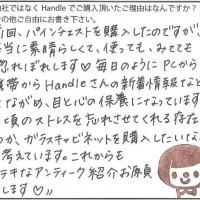 社ではなく Handle でご購入頂いたご理由はなんですか？
の他ご自由にお書き下さい。
回、パインチェストを購入したのですが
当に素晴らしくて、使っても、みても
惚れぼれします♡毎日のようにPCから
携帯からHandleさんの新着情報など
ながめ、目と心の保養になっています
頃のストレスを忘れさせてくれる存在
つか、ガラスキャビネットを購入したいな
考えています。これからも
テキなアンティーク紹介お願
します♡〃